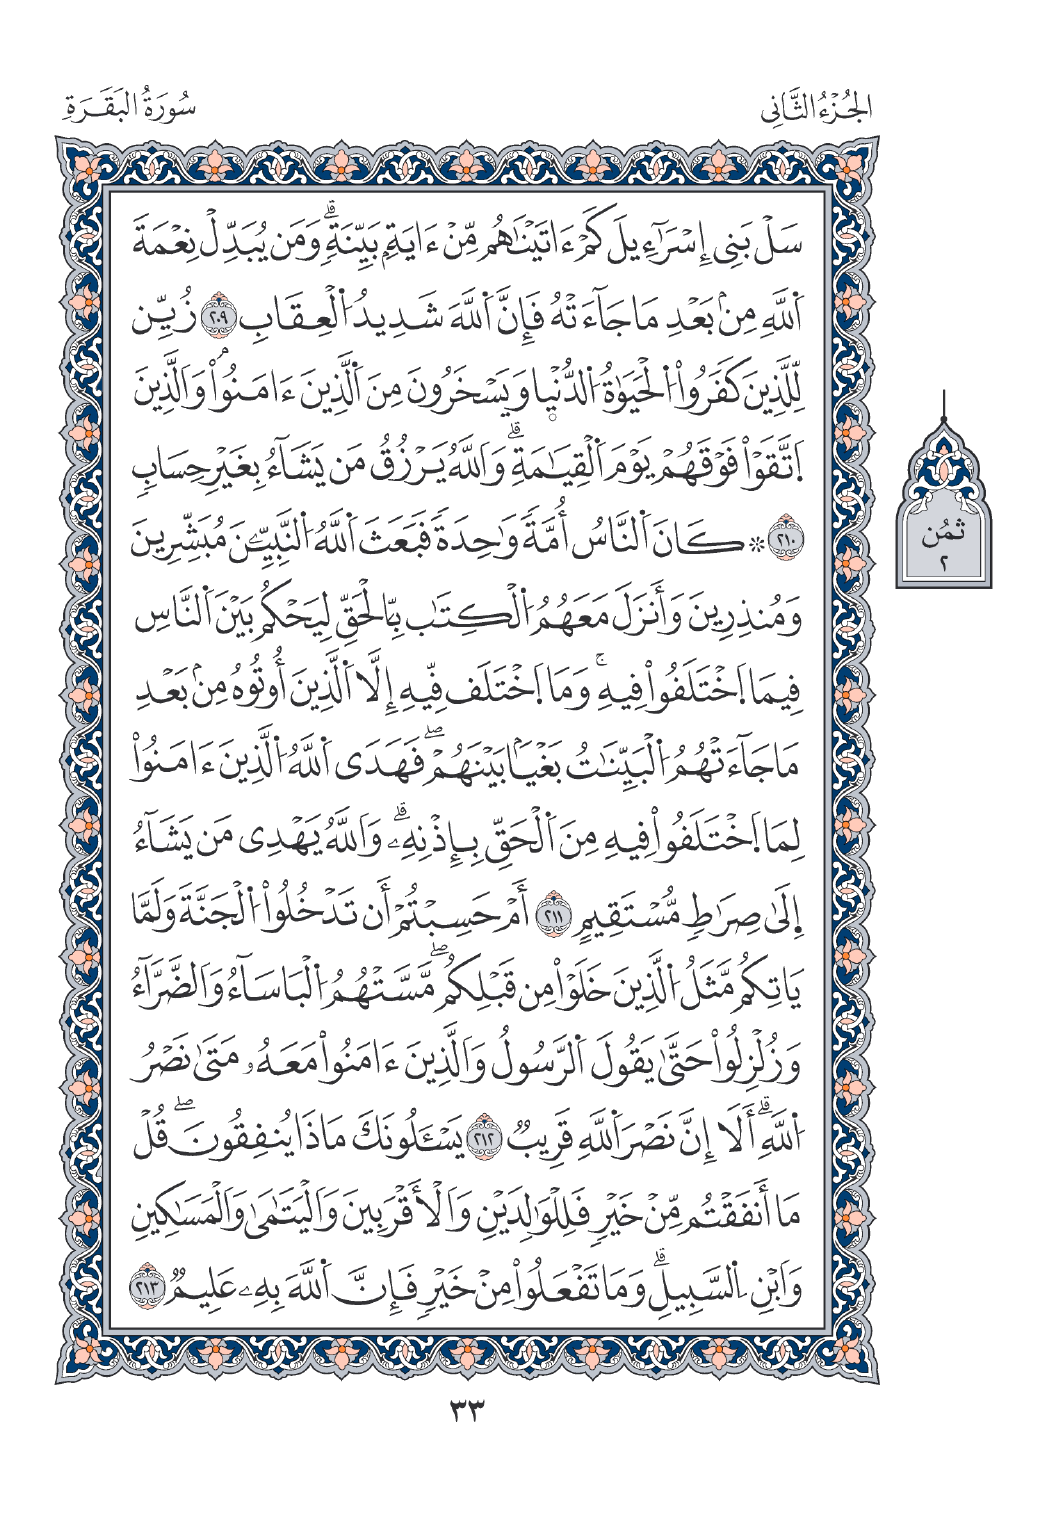 الجُزْءُ الثَّانِي
سُورَةُ البَقَرَةِ
سَلْ بَنِي إِسْرَآءِيلَ كَمَ ءَاتَيْنَٰهُم مِّنَ ءَايَةِۢ بَيِّنَةٖۗ وَمَن يُبَدِّلْ نِعْمَةَ
اَ۬للَّهِ مِنۢ بَعْدِ مَا جَآءَتْهُ فَإِنَّ اَ۬للَّهَ شَدِيدُ اُ۬لْعِقَابِ ٢٠٩ زُيِّنَ
لِلَّذِينَ كَفَرُواْ اُ۬لْحَيَوٰةُ اُ۬لدُّنْي۪ا وَيَسْخَرُونَ مِنَ اَ۬لَّذِينَ ءَامَنُواْۘ وَالَّذِينَ
اَ۪تَّقَوْاْ فَوْقَهُمْ يَوْمَ اَ۬لْقِيَٰمَةِۗ وَاللَّهُ يَرْزُقُ مَن يَشَآءُ بِغَيْرِ حِسَابٖ
٢١٠ ۞ كَانَ اَ۬لنَّاسُ أُمَّةٗ وَٰحِدَةٗ فَبَعَثَ اَ۬للَّهُ اُ۬لنَّبِيِٕۧنَ مُبَشِّرِينَ
وَمُنذِرِينَ وَأَنزَلَ مَعَهُمُ اُ۬لْكِتَٰبَ بِالْحَقِّ لِيَحْكُمَ بَيْنَ اَ۬لنَّاسِ
فِيمَا اَ۪خْتَلَفُواْ فِيهِۚ وَمَا اَ۪خْتَلَفَ فِيهِ إِلَّا اَ۬لَّذِينَ أُوتُوهُ مِنۢ بَعْدِ
مَا جَآءَتْهُمُ اُ۬لْبَيِّنَٰتُ بَغْيَۢا بَيْنَهُمْۖ فَهَدَى اَ۬للَّهُ اُ۬لَّذِينَ ءَامَنُواْ
لِمَا اَ۪خْتَلَفُواْ فِيهِ مِنَ اَ۬لْحَقِّ بِإِذْنِهِۦۗ وَاللَّهُ يَهْدِي مَن يَشَآءُ
اِ۪لَىٰ صِرَٰطٖ مُّسْتَقِيمٍ ٢١١ أَمْ حَسِبْتُمْ أَن تَدْخُلُواْ اُ۬لْجَنَّةَ وَلَمَّا
يَاتِكُم مَّثَلُ اُ۬لَّذِينَ خَلَوْاْ مِن قَبْلِكُمۖ مَّسَّتْهُمُ اُ۬لْبَاسَآءُ وَالضَّرَّآءُ
وَزُلْزِلُواْ حَتَّىٰ يَقُولَ اَ۬لرَّسُولُ وَالَّذِينَ ءَامَنُواْ مَعَهُۥ مَتَىٰ نَصْرُ
اُ۬للَّهِۗ أَلَا إِنَّ نَصْرَ اَ۬للَّهِ قَرِيبٞ ٢١٢ يَسْـَٔلُونَكَ مَاذَا يُنفِقُونَۖ قُلْ
مَا أَنفَقْتُم مِّنْ خَيْرٖ فَلِلْوَٰلِدَيْنِ وَالْأَقْرَبِينَ وَالْيَتَٰمَىٰ وَالْمَسَٰكِينِ
وَابْنِ اِ۬لسَّبِيلِۗ وَمَا تَفْعَلُواْ مِنْ خَيْرٖ فَإِنَّ اَ۬للَّهَ بِهِۦ عَلِيمٞ ٢١٣
ثُمُن
٢
٣٣